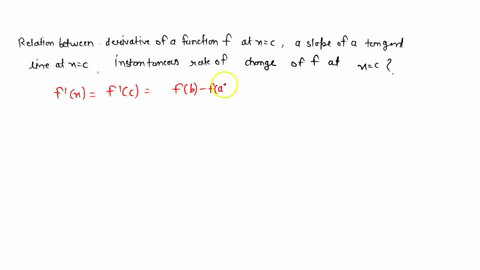 Relation between derivative of a function f at x=c, a slope of a tangent
line at x=c, instantaneous rate of change of f at x=c?
f'(x) = f'(c) = f(b)-f(a